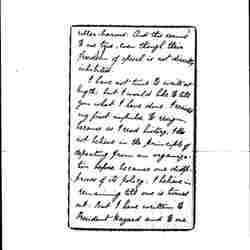 other harms. And this seems
to me true, even though this
freedom of speech is not directly
inhibited.
I have not time to write at
length but I would like to tell
you what I have done. I resisted
my first impulse to resign
because as I read history, I do
not believe in the principle of
departing from an organiza-
tion before because one disap-
proves of its policy. I believe in
remaining till one is turned
out. But I have written to
President Hazard and to one